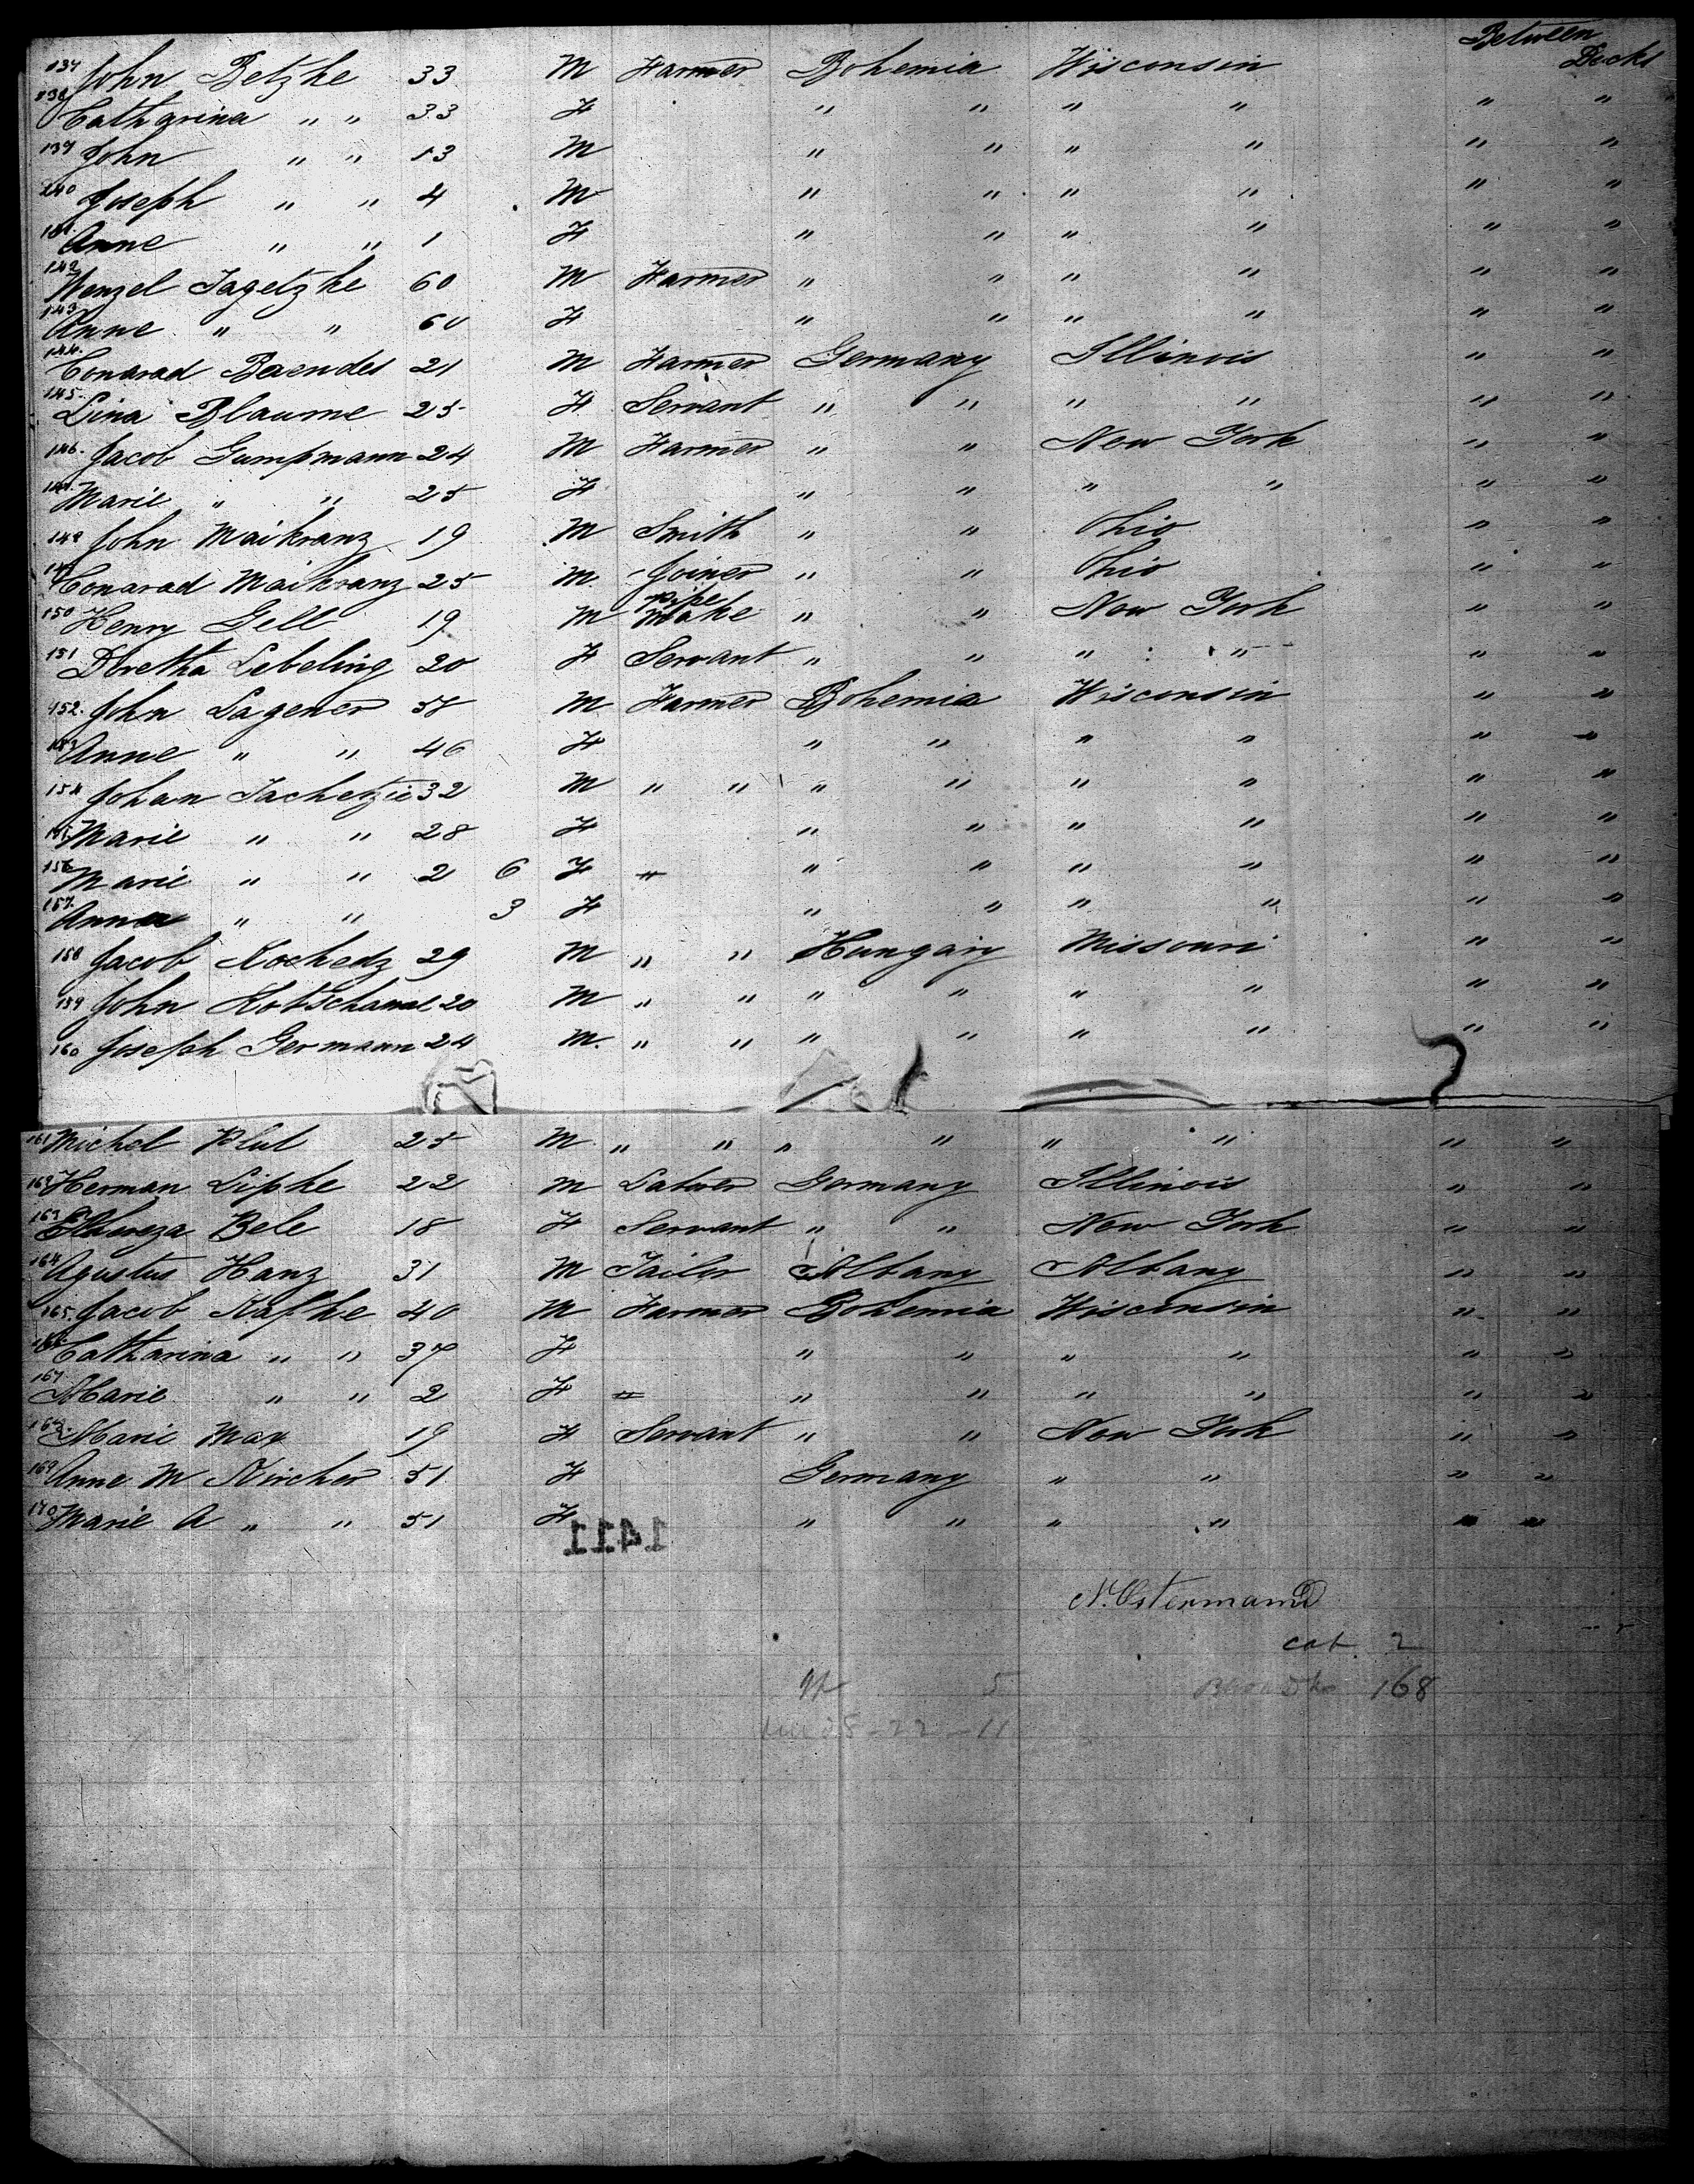 Between Decks
137 John Betzke 33 M Farmer Bohemia Wisconsin
138 Catharina " " 33 F " " " " " "
139 John " " 13 M " " " " " "
240 Joseph " " 4 M " " " " " "
141 Anne " " 1 F " " " " " "
142 Wenzel Tagetzke 60 M Farmer " " " " " "
143 Anne " " 60 F " " " " " "
144. Conarad Baendes 21 M Farmer Germany Illinois " "
145. Lina Blaume 25 F Servant " " " " " "
146. Jacob Gumpmann 24 M Farmer " " New York " "
147. Marie " " 25 F " " " " " "
148 John Maikranz 19 M Smith " " Ohio " "
149 Conarad Maikranz 25 M. Joiner " " Ohio " "
150 Henry Gell 19 M pipe make " " New York " "
151 Doretha Lebeling 20 F Servant " " " " " "
152. John Lagener 58 M Farmer Bohemia Wisconsin " "
153 Anne " " 46 F " " " " " "
154 Johan Tachetzie 32 M " " " " " " " "
155 Marie " " 28 F " " " " " "
156 Marie " " 2 6 F " " " " " " "
157. Anna " " 3 F " " " " " "
158 Jacob Kochedz 29 M " " Hungary Missouri " "
159 John Kotschamel 20 M " " " " " " " "
160 Joseph Germann 24 M. " " " " " " " "
161 Michel Blut 25 M " " " " " " " "
162 Herman Lipke 22 M Germany Illinois " "
163 Bele 18 F Servant " " New York " "
164 Agustus Hanz 31 M Tailor Albany Albany " "
165. Jacob Kafke 40 M Farmer Bohemia Wisconsin " "
166. Catharina " " 37 F " " " " " "
167. Marie " " 2 F " " " " " " "
168. Marie Max 19 F Servant " " New York " "
169 Anne M Kircher 51 F Germany " " " "
170 Marie A " " 51 F " " " " " "
1411
N. Ostermann
cab. 2
5 168
28-22-11